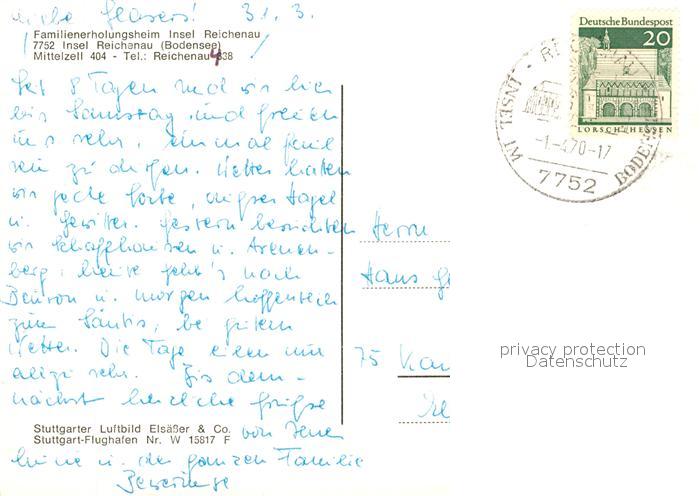 Liebe Glasers! 31.3.
Familienerholungsheim Insel Reichenau
7752 Insel Reichenau (Bodensee)
Mittelzell 404 - Tel.: Reichenau 438
Seit 8 Tagen sind wir hier
bis Samstag und freuen
uns sehr, einmal faul
sein zu dürfen. Wetter hatten
wir jede Sorte, außer Hagel
u. Gewitter. Gestern besuchten
wir Schaffhausen u. Arenen-
berg, heute geht's nach
Beuron u. morgen hoffentlich
zum Säntis, bei gutem
Wetter. Die Tage eilen nur
allzu sehr. Bis dem-
nächst herzliche Grüße
Stuttgarter Luftbild Elsäßer & Co.
Stuttgart-Flughafen Nr. W 15817 F
von Ihrer
u. der ganzen Familie
Deutsche Bundespost
20
LORSCH/HESSEN
INSEL IM BODENSEE
-1.-4.70-17
7752
Herrn
Hans
75
privacy protection
Datenschutz